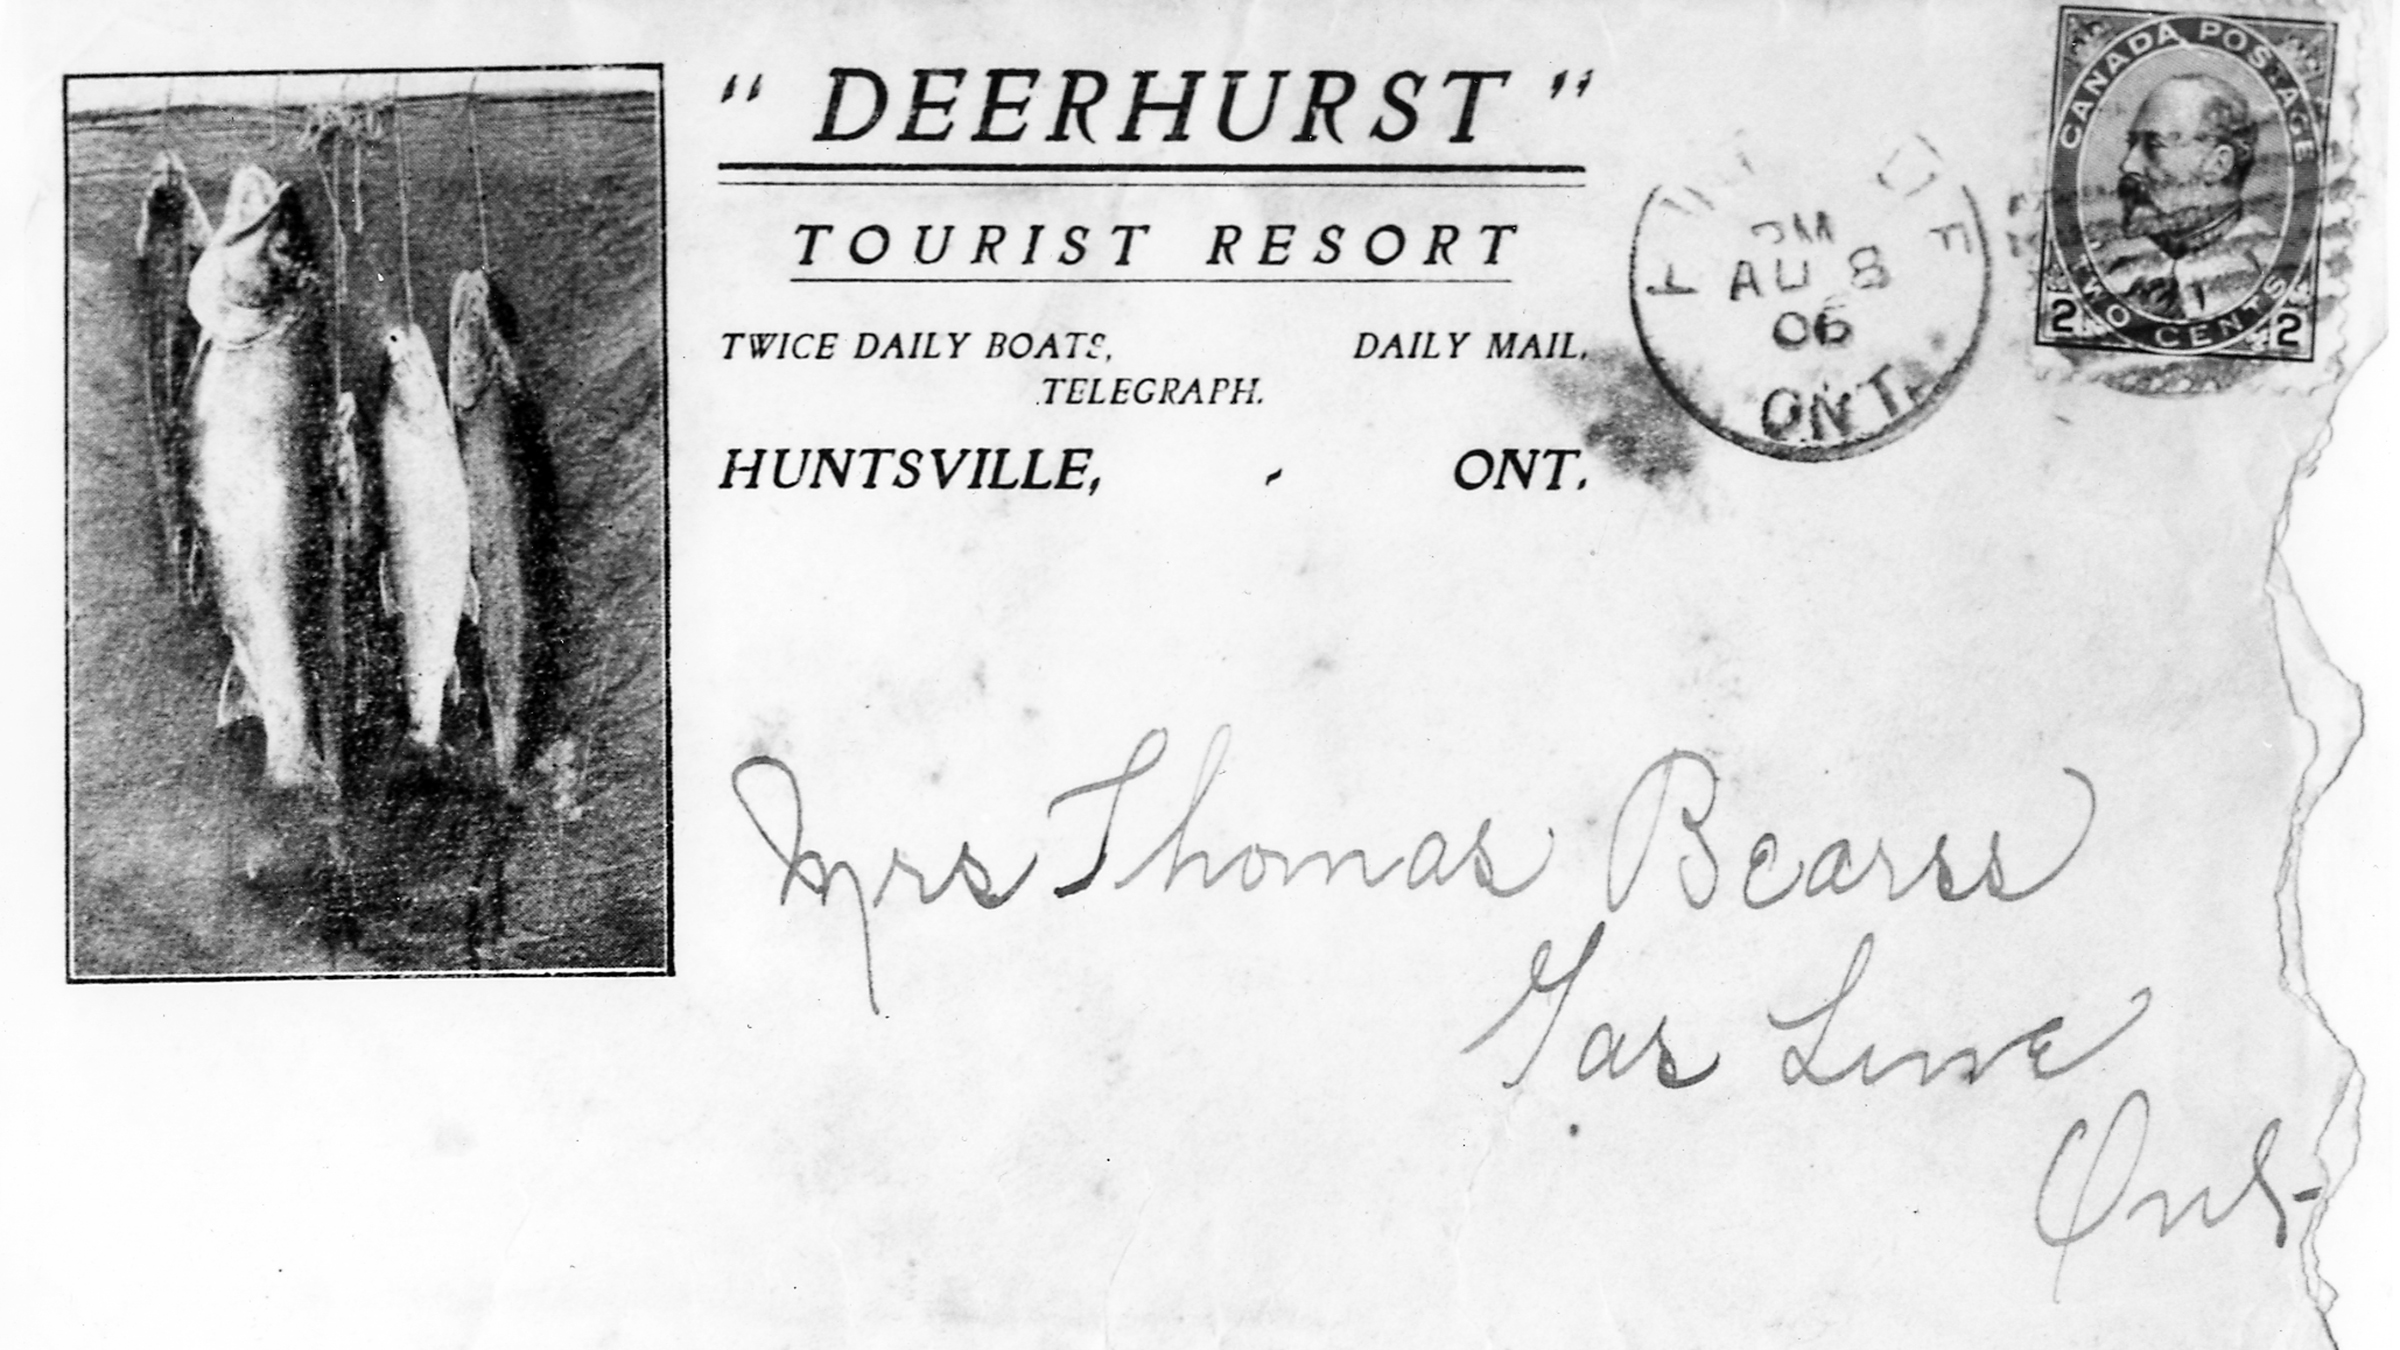 " DEERHURST "
TOURIST RESORT
TWICE DAILY BOATS, DAILY MAIL,
TELEGRAPH.
HUNTSVILLE, - ONT.
PM
AU 8
06
ONT.
CANADA POSTAGE
2 TWO CENTS 2
Mrs Thomas Bearss
Gas Line
Ont-